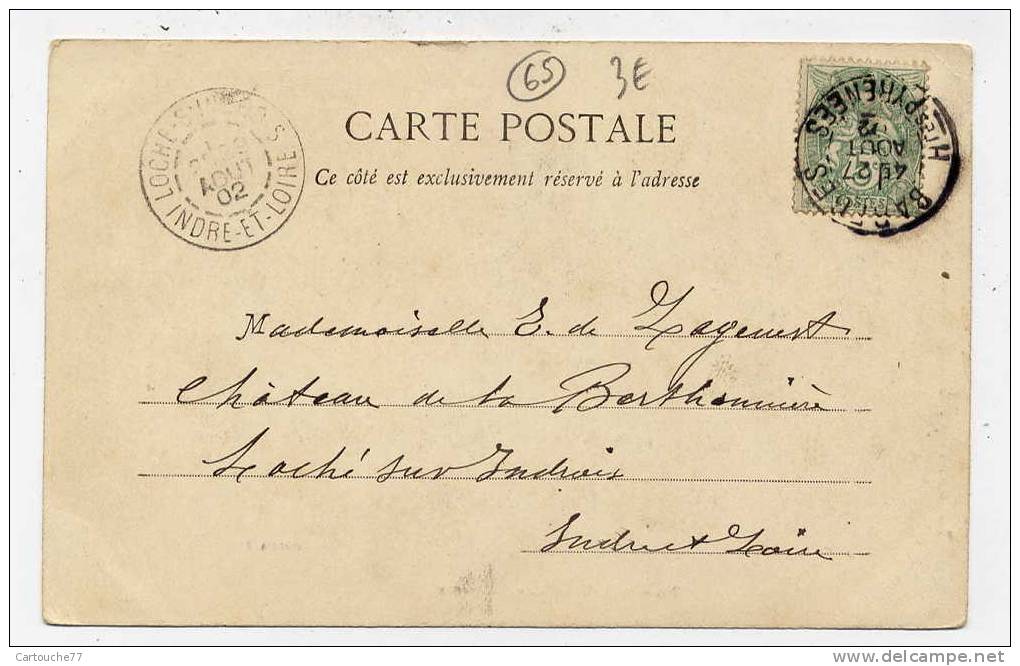 65 3E
CARTE POSTALE
Ce côté est exclusivement réservé à l'adresse
LOCHÉ-S
AOUT
02
INDRE-ET-LOIRE
BARÈGES
4E 27
AOUT
02
Htes PYRÉNÉES
Mademoiselle E. de
Château de la Berthonnière
Loché sur Indrois
Indre et Loire
Cartouche77
delcampe.net